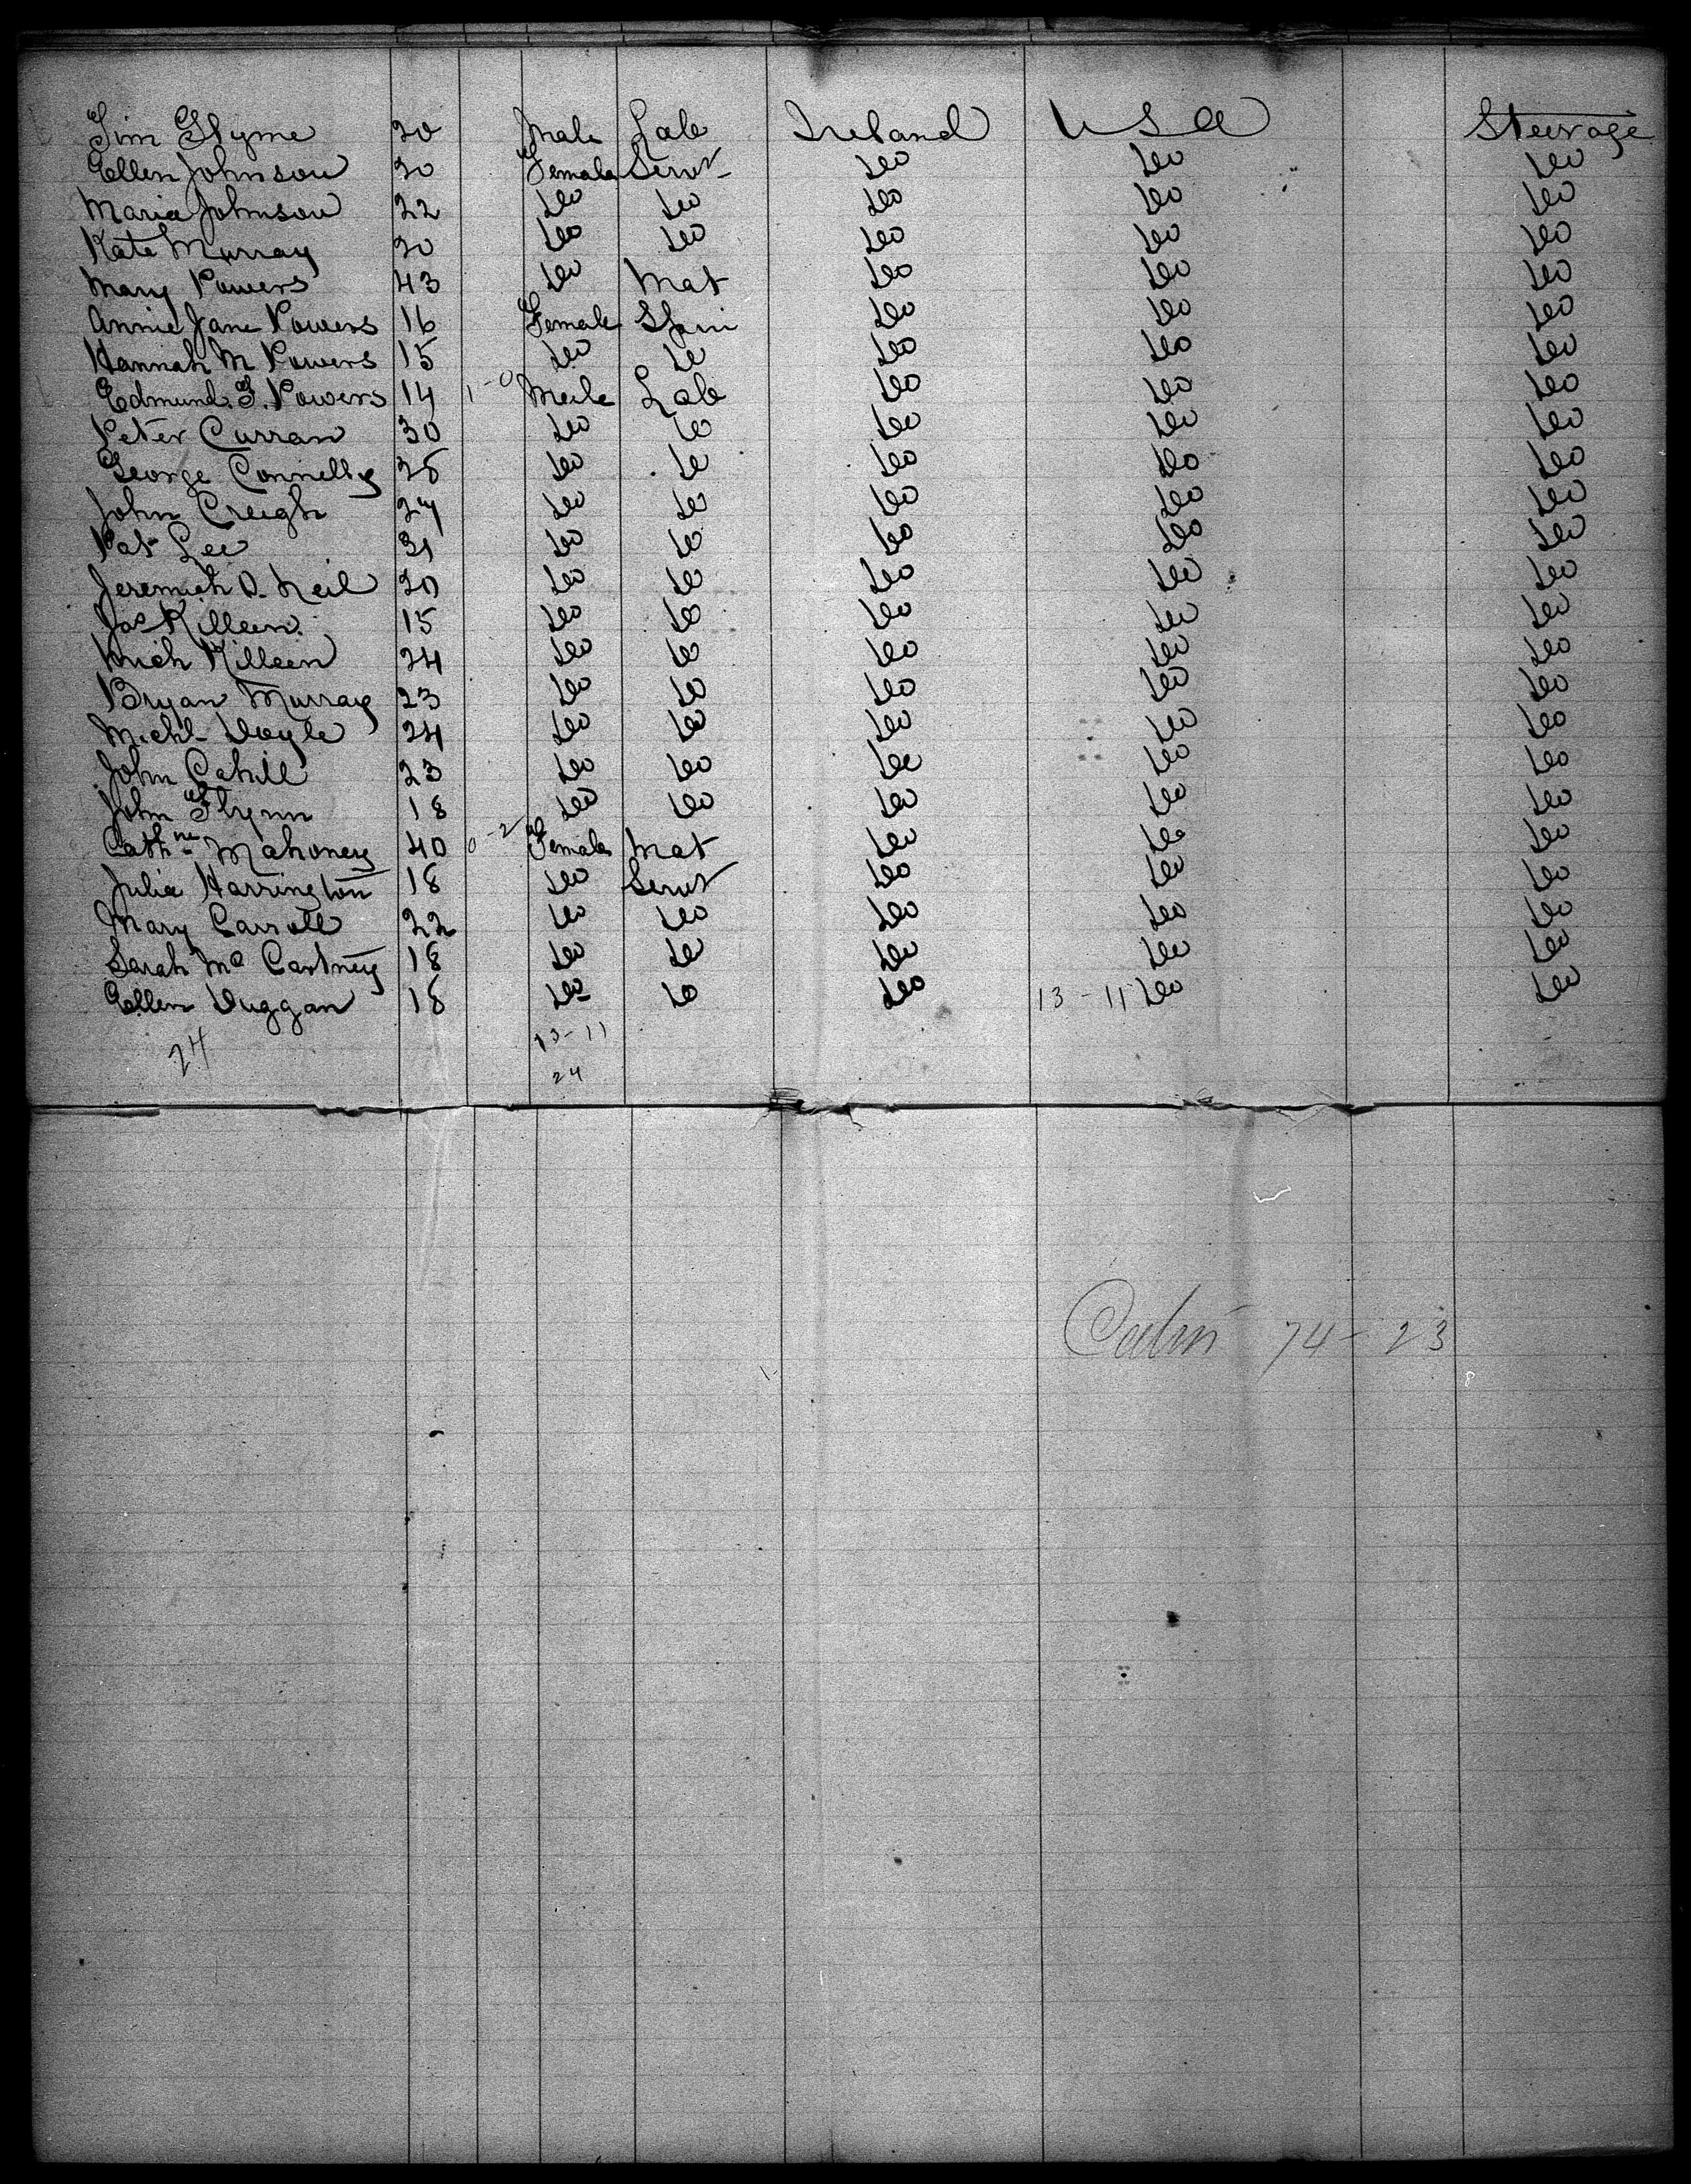 Tim Glynne 20 Male Lab Ireland USA Steerage
Ellen Johnson 20 Female Servt do do do
Maria Johnson 22 do do do do do
Kate Murray 20 do do do do do
Mary Powers 43 do Mat do do do
Annie Jane Powers 16 Female Spin do do do
Hannah M Powers 15 do do do do do
Edmund. F. Powers 14 1-0 Male Lab do do do
Peter Curran 30 do do do do do
George Connelly 28 do do do do do
John Creigh 27 do do do do do
Pat Lee 21 do do do do do
Jeremiah O. Neil 20 do do do do do
Jas Killeen 15 do do do do do
Mich Killeen 24 do do do do do
Bryan Murray 23 do do do do do
Michl Doyle 24 do do do do do
John Cahill 23 do do do do do
John Flynn 18 do do do do do
Cathne Mahoney 40 0-2 Female Mat do do do
Julia Harrington 18 do Servt do do do
Mary Carroll 22 do do do do do
Sarah Mc Cartney 18 do do do do do
Ellen Duggan 18 do do do 13-11 do do
24 13-11
24
Cabin 74-23